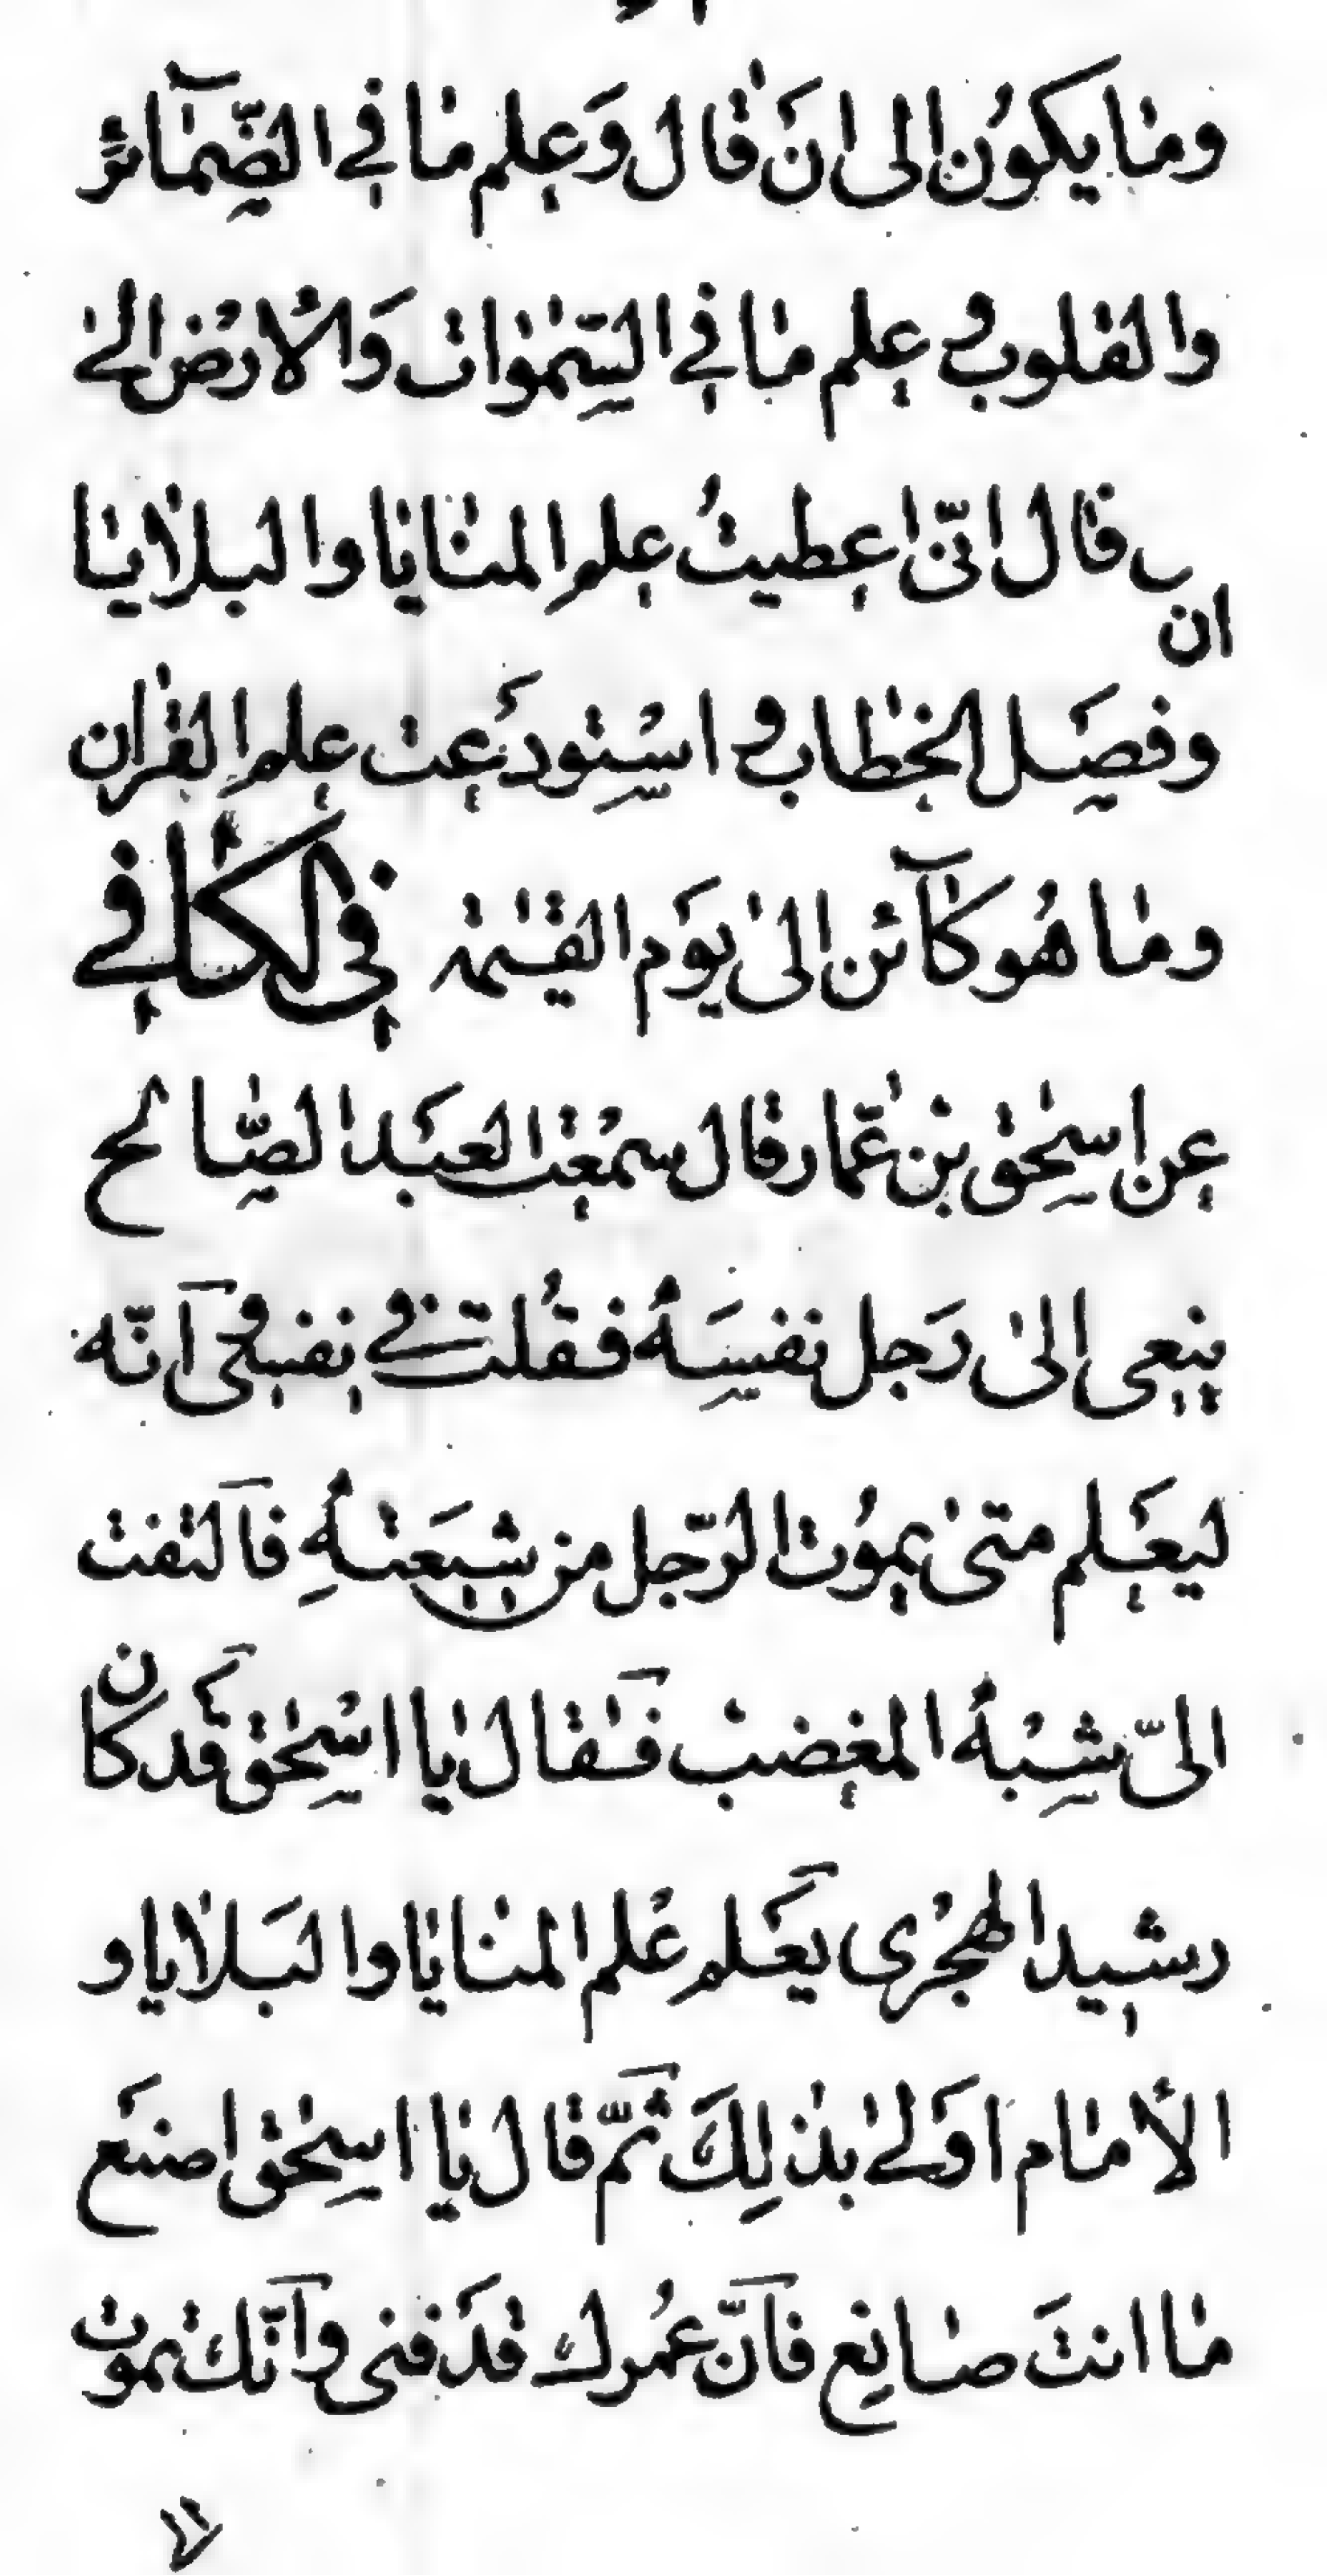 وما يكون الى ان قال وَعلم ما في الضّمآئر
والقلوب و علم ما في السّموات وَالارض الى
ان قال انّى اعطيتُ علم المنايا والبلايا
وفصَل الخطاب و استودَعت علم القران
وما هُو كآئن الى يوَم القيمة في الكافي
عن اسحٰق بن عمّار قال سمعْت العبَد الصّالح
ينعى الى رَجل نفسَهُ فقُلت في نفسى و آنّه
ليعَلم متى يموُت الرّجل من شيعَتهُِ فآلتفت
الىّ شبْهُ المغضب فقال يا اسْحٰق قَد كان
رشيد الهجْرى يعَلم عْلم المنايا والبَلايا و
الأمام اوَلى بذلِكَ ثمّ قال يا اسحٰق اصنَع
ما انتَ صانع فآنّ عمُرك قَد فنى وآنّك تموت